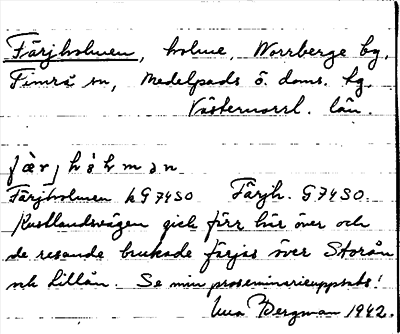 Färjholmen, holme, Norrberge by,
Timrå sn, Medelpads ö. doms. hg,
Västernorrl. län.
Färjholmen h G74SO Färjh. G74SO.
Kustlandsvägen gick förr här över och
de resande brukade färjas över Storån
och Lillån. Se min proseminarieuppsats!
Bergman 1942.